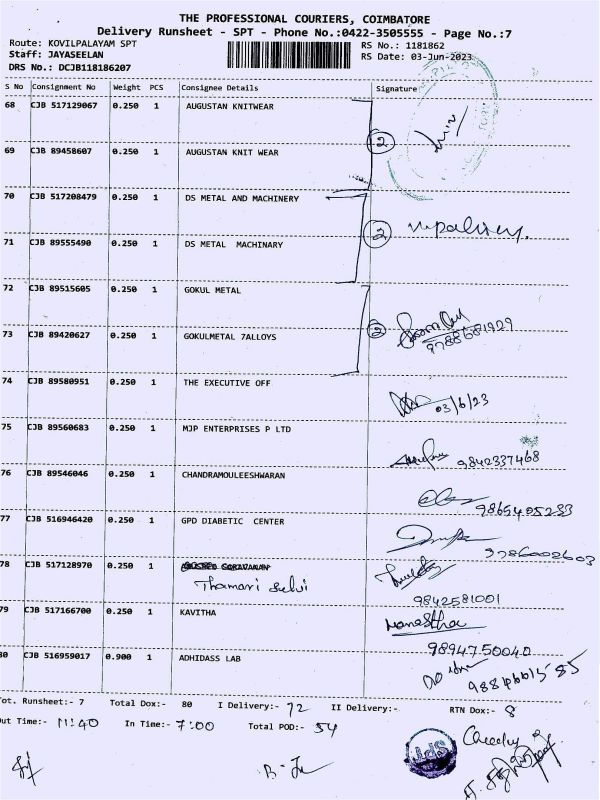 THE PROFESSIONAL COURIERS, COIMBATORE
Delivery Runsheet - SPT - Phone No.:0422-3505555 - Page No.:7
Route: KOVILPALAYAM SPT
Staff: JAYASEELAN
DRS No.: DCJB118186207
RS No.: 1181862
RS Date: 03-Jun-2023
S No Consignment No Weight PCS Consignee Details Signature
68 CJB 517129067 0.250 1 AUGUSTAN KNITWEAR
2
69 CJB 89458607 0.250 1 AUGUSTAN KNIT WEAR
70 CJB 517208479 0.250 1 DS METAL AND MACHINERY
2
71 CJB 89555490 0.250 1 DS METAL MACHINARY
72 CJB 89515605 0.250 1 GOKUL METAL
2 9788681929
73 CJB 89420627 0.250 1 GOKULMETAL 7ALLOYS
74 CJB 89580951 0.250 1 THE EXECUTIVE OFF
03/6/23
75 CJB 89560683 0.250 1 MJP ENTERPRISES P LTD
9842337468
76 CJB 89546046 0.250 1 CHANDRAMOULEESHWARAN
9865405233
77 CJB 516946420 0.250 1 GPD DIABETIC CENTER
9786002603
78 CJB 517128970 0.250 1
Thamari selvi
9842581001
79 CJB 517166700 0.250 1 KAVITHA
9894750040
80 CJB 516959017 0.900 1 ADHIDASS LAB
Tot. Runsheet:- 7 Total Dox:- 80 I Delivery:- 72 II Delivery:- RTN Dox:- 8
Out Time:- 11:40 In Time:- 7:00 Total POD:- 54
SPT